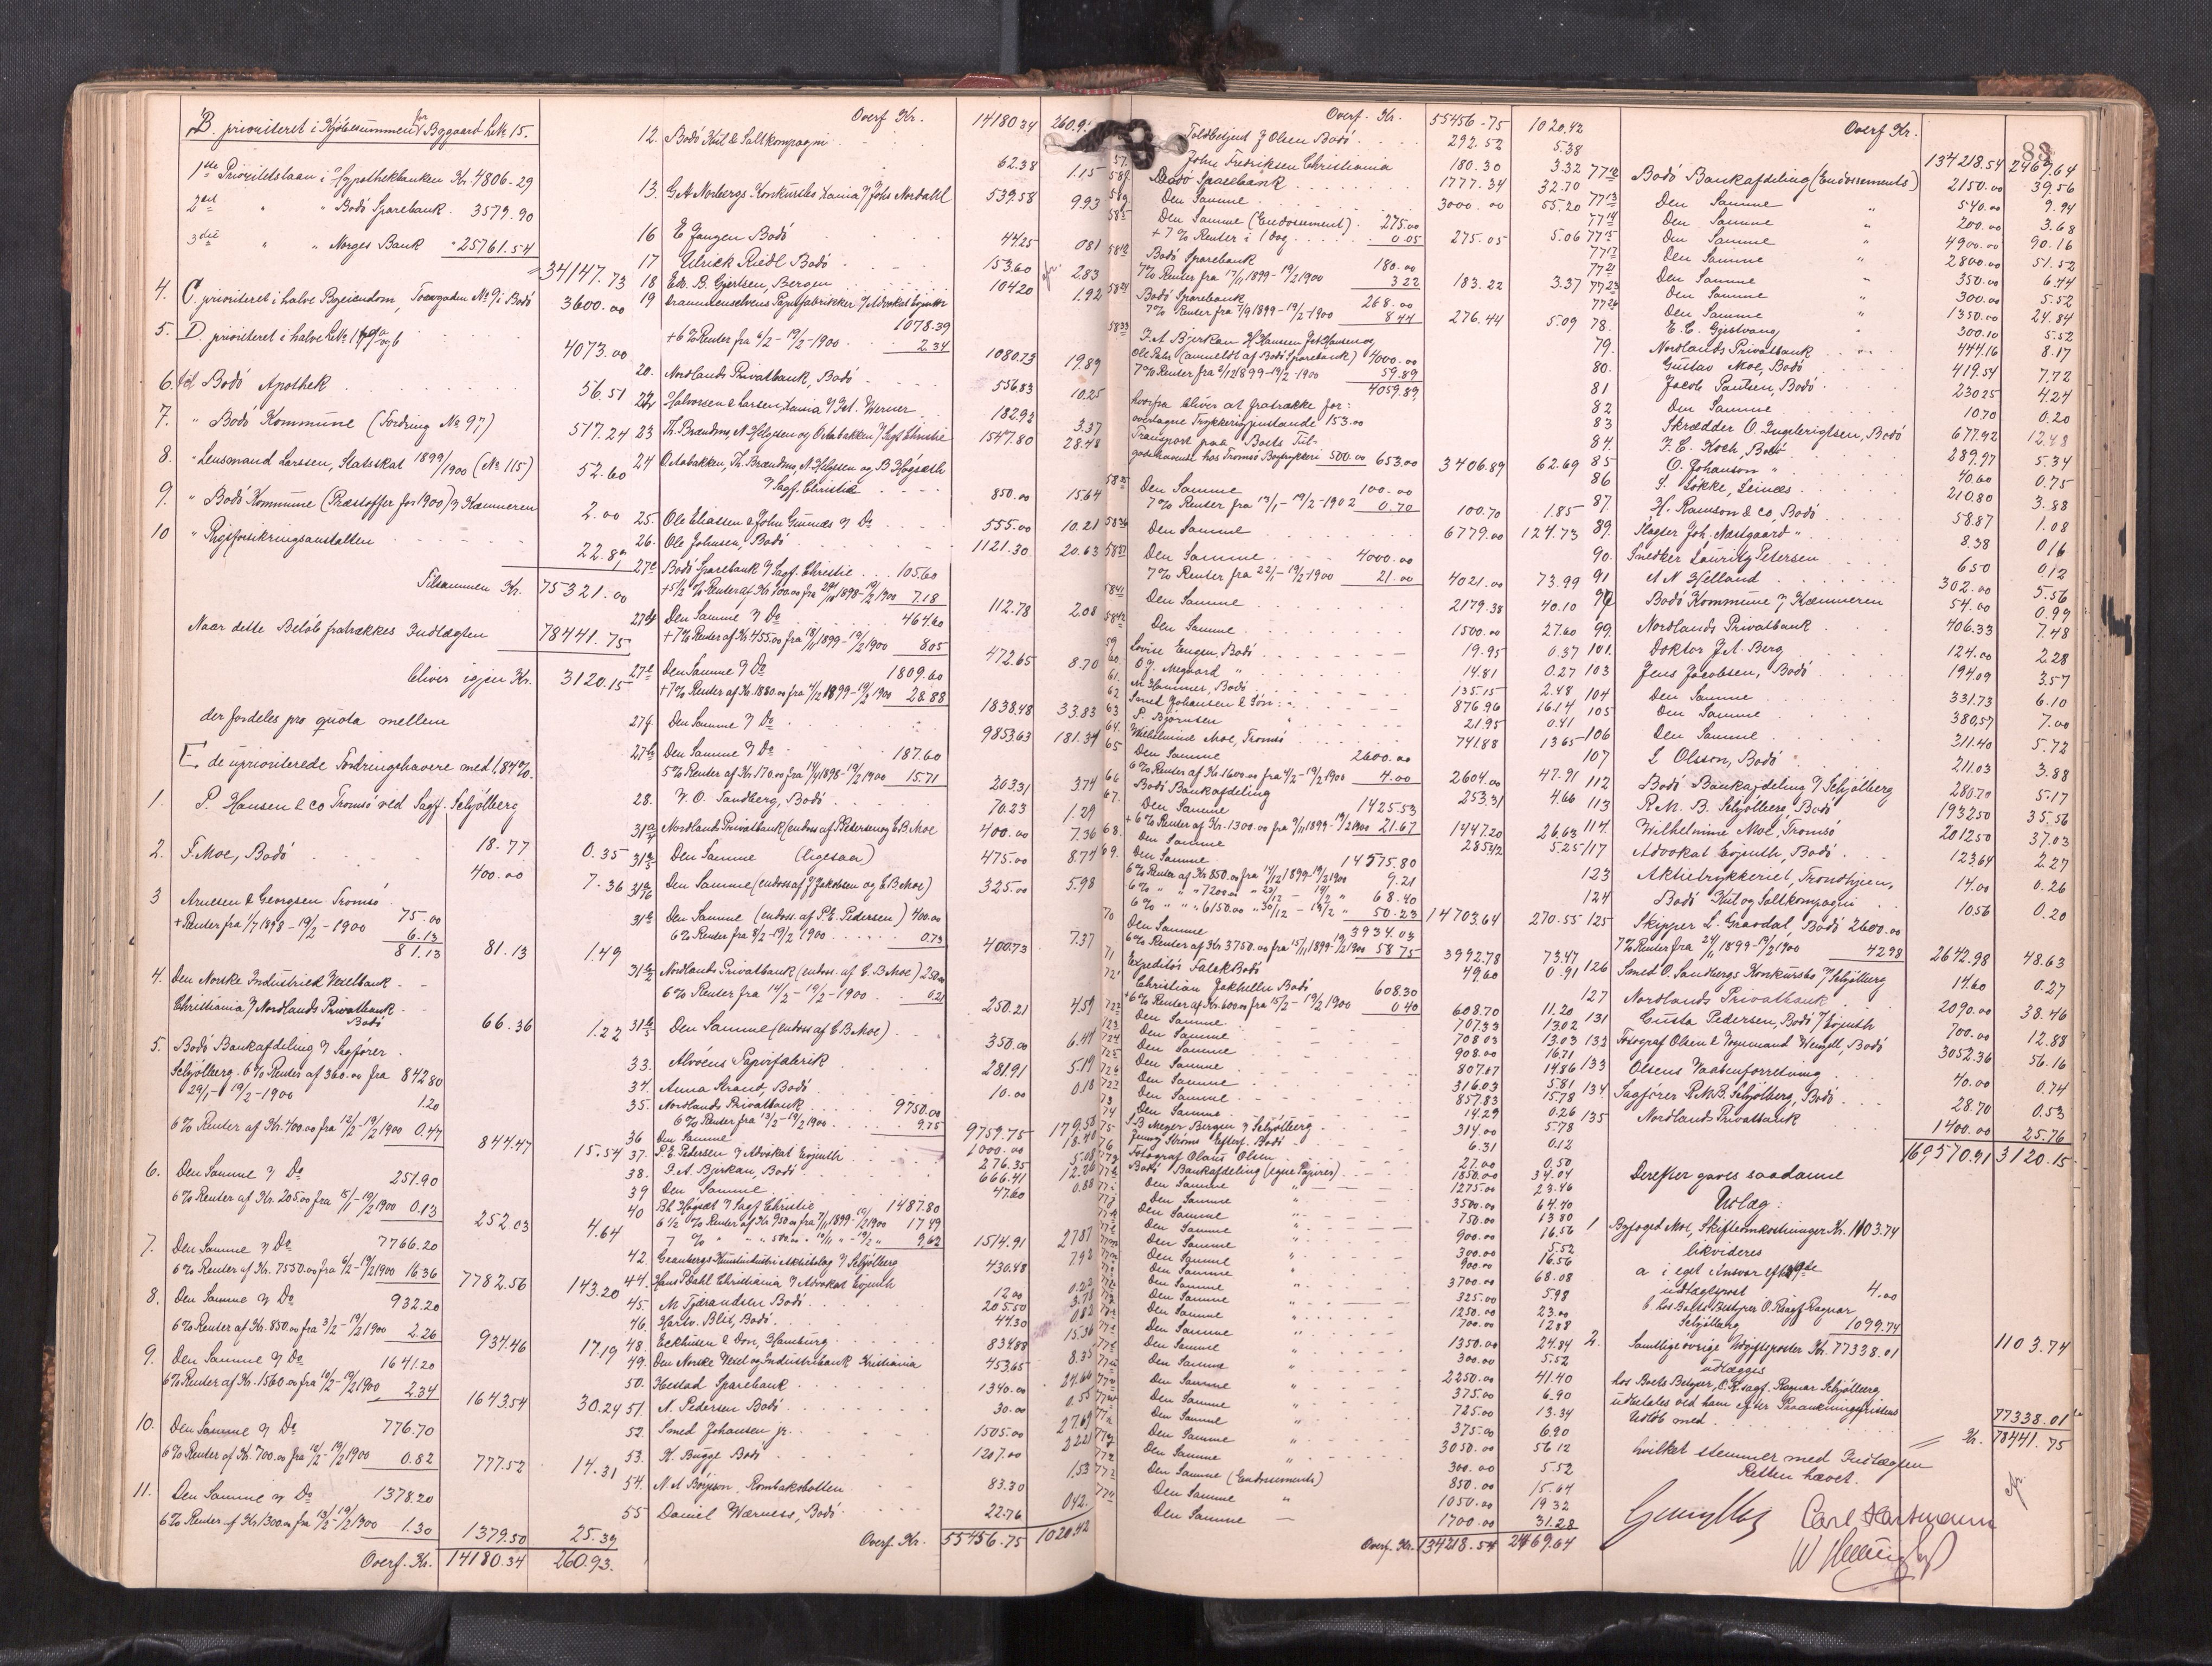 B. prioriteret i Kjöbesummen for Byggaard Lek 15.
1ste Prioritetslaan i Hypothekbanken Kr. 4806-29
2det " " Bodö Sparebank. 3579.90
3die " " Norges Bank " 25761.54
34147.73
4. C. prioriteret i halve Byeiendom, Torvgaden No 9 i Bodö 3600.00
5. D. prioriteret i halve Lek
4073.00
6. til Bodö Apothek 56.51
7. " Bodö Kommune (Fordring No 97) 517.24
8. " Lensmand Larssen, Statsskat 1899/1900 (No 115) 52.60
9. " Bodö Kommune (Præstoffer for 1900) v Kæmneren 2.00
10 " Rigsforsikringsanstalten 22.89
Tilsammen Kr. 75321.00
Naar dette Belöb fratrækkes Indtægten 78441.75
bliver igjen Kr. 3120.15
der fordeles pro quota mellem
E. de uprioriterede Fordringshavere med 1,84%.
1. P. Hansen & Co Tromsö ved Sagf. Schjölberg 18.77 0.35
2. F. Moe, Bodö 400.00 7.36
3 Arnesen & Georgsen Tromsö 75.00
+ Renter fra 1/7 1898 - 19/2 - 1900 6.13
81.13 81.13 1.49
4. Den Norske Industri & Vexelbank
Christiania v/ Nordlands Privatbank
Bodö 66.36 1.22
5. Bodö Bankafdeling v Sagförer
Schjölberg. 6% Renter af 360.00 fra 842.80
29/1 - 19/2 - 1900 1.20
6% Renter af Kr. 400.00 fra 12/2 - 19/2 1900 0.47 844.47 15.54
6. Den Samme v Do 251.90
6% Renter af Kr. 205.00 fra 15/1 - 19/2 1900 0.13 252.03 4.64
7. Den Samme v Do 7766.20
6% Renter af Kr. 7550.00 fra 6/2 - 19/2 1900 16.36 7782.56 143.20
8. Den Samme v Do 932.20
6% Renter af Kr. 850.00 fra 3/2 - 19/2 1900 2.26 934.46 17.19
9. Den Samme v Do 1641.20
6% Renter af Kr. 1560.00 fra 10/2 - 19/2 1900 2.34 1643.54 30.24
10. Den Samme v Do 776.70
6% Renter af Kr. 700.00 fra 12/2 - 19/2 1900 0.82 777.52 14.31
11. Den Samme v Do 1378.20
6% Renter af Kr. 1300.00 fra 13/2 - 19/2 1900 1.30 1379.50 25.39
Overf. Kr. 14180.34 260.93.
Overf Kr. 14180 34 260.9
12. Bodö Kul & Saltkompagni 62.38 1.15
13. G A Norbergs Konkursbo, Rania v/ Johs Nordahl 539.58 9.93
16 E Jangen Bodö 44.25 0.81
17 Ulrick Riedl Bodö 153.60 2.83
18 Ecb. B. Gjertsen, Bergen 104.20 1.92
19 Drammenselvens Papirfabrikker v/ Advokat Evjenth
1078.39
+ 6% Renter fra 6/2 - 19/2 - 1900 2.34 1080.73 19.89
20. Nordlands Privatbank, Bodö 556.83 10.25
22. Halvorsen & Larsen, Rania v/ Fet. Werner 182.92 3.37
23 Th. Brændmo, N Helgesen og Octobakken v/ Sagf Christie 1547.80 28.48
24 Octobakken, Th. Brændmo, N. Helgesen og B Högsæth
v/ Sagf. Christie 850.00 15.64
25. Ole Eliassen & John Gunnes v Do 555.00 10.21
26. Ole Johnsen, Bodö 1121.30 20.63
27c Bodö Sparebank v Sagf. Christie 105.60
+ 5½% Renter af Kr. 100.00 fra 29/10 1898 - 19/2 1900 7.18 112.78 2.08
27d Den Samme v Do 464.60
+ 7% Renter af Kr. 455.00 fra 18/11 1899 - 19/2 1900 8.05 472.65 8.70
27e Den Samme v Do 1809.60
+ 7% Renter af Kr. 1880.00 fra 4/12 1899 - 19/2 1900 28.88 1838.48 33.83
27g. Den Samme v Do 9853.63 181.31
27h Den Samme v Do 187.60
5% Renter af Kr. 170.00 fra 14/4 1898 - 19/2 1900 15.71 203.31 3.74
28. V. O. Sandberg, Bodö 70.23 1.29
31 Nordlands Privatbank (endoss af P. Pedersen og E B Moe 400.00 7.36
31 Den Samme (ligesaa) 475.00 8.74
31 Den Samme (endoss af J Jakobsen og E B Moe) 325.00 5.98
31 Den Samme (endoss. af P. E. Pedersen) 400.00
6% Renter fra 8/2 - 19/2 1900 0.73 400.73 7.37
31 Nordlands Privatbank (endoss. af E. B Moe) 250.00
6% Renter fra 14/2 - 19/2 - 1900 0.21 250.21 4.59
31 Den Samme (endoss af E B Moe) 350.00 6.44
33. Alvöens Papirfabrik 281.91 5.19
34. Anna Strand, Bodö 10.00 0.18
35. Nordlands Privatbank 9750.00
6% Renter fra 13/2 - 19/2 - 1900 9.75 9759.75 179.58
36 Den Samme 1000.00 18.40
37. P. E. Pedersen v Advokat Evjenth 276.35 5.08
38. J. A. Bjerkan, Bodö 666.41 12.26
39 Den Samme 47.60 0.88
40 B. Högsæt v Sagf Christie 1487.80
6½% Renter af Kr 950.00 fra 7/11 1899 - 19/2 1900 17.49
7% " " " 500.00 " 10/11 " - 19/2 " 9.62 1514.91 27.87
42. Granbergs Kunstindustri Aktieselag v Schjölberg 430.48 7.92
44. Hans P Dahl Christiania v Advokat Evjenth 12.00 0.22
45. M Tjærandsen Bodö 205.50 3.78
46. Hartv. Blix, Bodö 44.30 0.82
48. Eckhusen & Don, Hamburg 834.88 15.36
49. Den Norske Vexel og Industribank Kristiania 453.65 8.35
50. Hestad Sparebank 1340.00 24.66
51. N. Pedersen Bodö 30.00 0.55
52. Smed Johansen jr. 1505.00 27.69
53. K. Bugge Bodö 1207.00 22.21
54. N. A Börjeson, Rombaksbotten 83.30 1.53
55 Daniel Wærness, Bodö 22.76 0.42.
Overf. Kr. 55456.75 1020.42
Overf. Kr. 55456-75 1020.42
Toldbetjent J Olsen Bodö 292.52 5.38
57. John Fredriksen Christiania 180.30 3.32
58 Bodö Sparebank 1777.34 32.70
58 Den Samme 3000.00 55.20
58 Den Samme (Endossement) 275.00
+ 7% Renter i 1 dag 0.05 275.05 5.06
58 Bodö Sparebank 180.00
7% Renter fra 17/11 1899 - 19/2 1900 3.22 183.22 3.37
58 Bodö Sparebank 268.00
7% Renter fra 7/9 1899 - 19/2 - 1900 8.44 276.44 5.09
58 J. A Bjerkan, H Hansen, Jet Hansen og
Ole Peter (anmeldt af Bodö Sparebank) 4000.00
7% Renter fra 4/12 1899 - 19/2 - 1900 59.89
4059.89
hvorfra bliver at fratrække for:
overtagne Trykkerigjenstande 153.00
Transport paa Boets Til-
godehavende hos Tromsö Bogtrykkeri 500.00 653.00 3406.89 62.69
58 Den Samme 100.00
7% Renter fra 13/1 - 19/2 - 1902 0.70 100.70 1.85
58 Den Samme 6779.00 124.73
58 Den Samme 4000.00
7% Renter fra 22/1 - 19/2 1900 21.00 4021.00 73.99
58 Den Samme 2179.38 40.10
58 Den Samme 1500.00 27.60
59 Lovise Eugen, Bodö 19.95 0.37
60. O J. Meyaard " 14.81 0.27
61. M Hammer, Bodö 135.15 2.48
62 Smed Johansen & Sön 876.96 16.14
63 P. Björnsen 21.95 0.41
64. Wilhelmine Moe, Tromsö 741.88 13.65
65 Den Samme 2600.00
6% Renter af Kr. 1600.00 fra 4/2 - 19/2 1900 4.00 2604.00 47.91
66 Bodö Bankafdeling 253.31 4.66
67. Den Samme 1425.53
+ 6% Renter af Kr. 1300.00 fra 9/11 1899 - 19/2 1900 21.67 1447.20 26.63
68. Den Samme 285.42 5.25
69. Den Samme 14575.80
6% Renter af Kr. 850.00 fra 14/12 1899 - 19/2 1900 9.21
6% " " " 7200.00 " 23/12 - 19/2 " 68.40
6% " " " 6150.00 " 30/12 - 19/2 " 50.23 14703.64 270.55
70 Den Samme 3934.03
6% Renter af Kr 3750.00 fra 15/11 1899 - 19/2 1900 58.75 3992.78 73.47
71 Expeditör Falck Bodö 49.60 0.91
72 Christian Jakhelln Bodö 608.30
+ 6% Renter af Kr. 600.00 fra 15/2 - 19/2 1900 0.40 608.70 11.20
72 Den Samme 707.33 13.02
72 Den Samme 708.03 13.03
72 Den Samme 908.00 16.71
72 Den Samme 807.67 14.86
72 Den Samme 316.03 5.81
73 Den Samme 857.83 15.78
74 Den Samme 14.29 0.26
75 S B Meyer Bergen v Schjölberg 314.00 5.78
76 Jenny Ströms Efterf. Bodö 6.31 0.12
Fotograf Olaus Olsen 27.00 0.50
Bodö Bankafdeling (egne Papirer) 1850.00 34.04
Den Samme " 1275.00 23.46
Den Samme " 3500.00 64.40
Den Samme " 750.00 13.80
Den Samme " 900.00 16.56
Den Samme " 300.00 5.52
Den Samme " 900.00 16.56
Den Samme " 3700.00 68.08
Den Samme " 325.00 5.98
Den Samme " 1250.00 23.00
Den Samme " 700.00 12.88
Den Samme " 1350.00 24.84
Den Samme " 300.00 5.52
Den Samme " 2250.00 41.40
Den Samme " 375.00 6.90
Den Samme " 725.00 13.34
Den Samme " 375.00 6.90
Den Samme " 3050.00 56.12
Den Samme (Endossements) 300.00 5.52
Den Samme " 850.00 15.64
Den Samme 1050.00 19.32
1700.00 31.28
Overf. Kr. 134218.54 2469.64
88
Overf Kr. 134218.54 2469.64
77 Bodö Bankafdeling (Endossements) 2150.00 39.56
77 Den Samme " 540.00 9.94
77 Den Samme " 200.00 3.68
77 Den Samme " 4900.00 90.16
77 Den Samme " 2800.00 51.52
77 Den Samme 350.00 6.44
77 Den Samme 300.00 5.52
77 Den Samme 1350.00 24.84
78. E. C. Gjestvang 300.10 5.52
79. Nordlands Privatbank 444.16 8.17
80. Gustav Moe, Bodö 419.54 7.72
81 Jacob Paulsen, Bodö 230.25 4.24
82 Den Samme 10.70 0.20
83 Skrædder O. Ingebrigtsen, Bodö 677.92 12.48
84. F. C. Koch, Bodö 289.97 5.34
85 O. Johanson " 40.60 0.75
86 S. Lökke, Leines 210.80 3.88
87. H. Ramson & Co, Bodö 58.87 1.08
89. Slagter Joh. Næstgaard " 8.38 0.16
90. Snedker Lauritz Petersen 6.50 0.12
91 A N Helland 302.00 5.56
Bodö Kommune v Kæmneren 54.00 0.99
99. Nordlands Privatbank 406.33 7.48
101. Doktor J. A. Berg 124.00 2.28
103 Jens Jacobsen, Bodö 194.09 3.57
104 Den Samme 331.73 6.10
105 Den Samme 380.57 7.00
106 Den Samme 311.40 5.72
107 L Olsson, Bodö 211.03 3.88
112 Bodö Bankafdeling v Schjölberg 280.70 5.17
113 R. M. B. Schjölberg, Bodö 1932.50 35.56
114. Wilhelmine Moe, Tromsö 2012.50 37.03
117 Advokat Evjenth, Bodö 123.64 2.27
123 Aktietrykkeriet, Trondhjem, 14.00 0.26
124 Bodö Kul og Saltkompagni 10.56 0.20
125 Skipper L. Graadal, Bodö 2600.00
7% Renter fra 24/11 1899 - 19/2 1900 42.98 2642.98 48.63
126 Smed O. Sandbergs Konkursbo v Schjölberg 14.60 0.27
127 Nordlands Privatbank 2090.00 38.46
131 Gusta Pedersen, Bodö v Evjenth 700.00 12.88
132 Fotograf Olsen & Vognmand Wengell, Bodö 3052.36 56.16
133 Olsens Vaabenforretning 40.00 0.74
134 Sagförer R. M. B. Schjölberg, Bodö 28.70 0.53
135 Nordlands Privatbank 1400.00 25.76
169570.91 3120.15
Derefter gaves saadanne
Udlæg:
1 Byfoged Moe, Skifteomkostninger Kr. 1103.74
likvideres
a i eget Ansvar efter
udtægtspost 4.00
b. hos Boets Bestyrer O. Rsagf Ragnar
Schjölberg 1099.74 1103.74
2. Samtlige övrige Udgiftsposter Kr. 77338.01
udlægges
hos Boets Bestyrer, O. Rsagf. Ragnar Schjölberg,
udbetales ved ham efter Paaankningsfristens
Udlöb med 77338.01
Kr. 78441.75
hvilket stemmer med Indtægten
Retten hævet.
Carl Hartmann